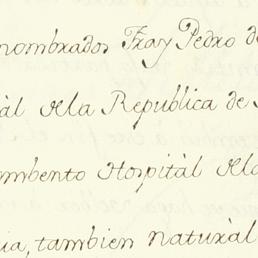 nombrados Fray Pedro de
àl dela Republica de
mbento Hospitàl dela
ia, tambien naturàl